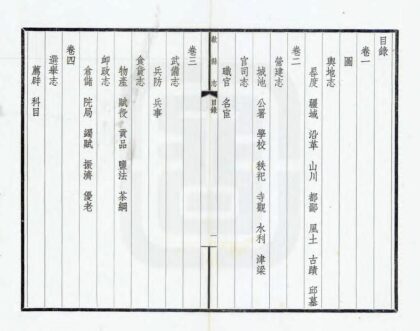 目錄
卷一
圖
輿地志
晷度 疆域 沿革 山川 都鄙 風土 古蹟 邱墓
卷二
營建志
城池 公署 學校 秩祀 寺觀 水利 津梁
官司志
職官 名宦
歙縣志 目錄 一
卷三
武備志
兵防 兵事
食貨志
物產 賦役 貢品 鹽法 茶綱
卹政志
倉儲 院局 蠲賦 振濟 優老
卷四
選舉志
薦辟 科目